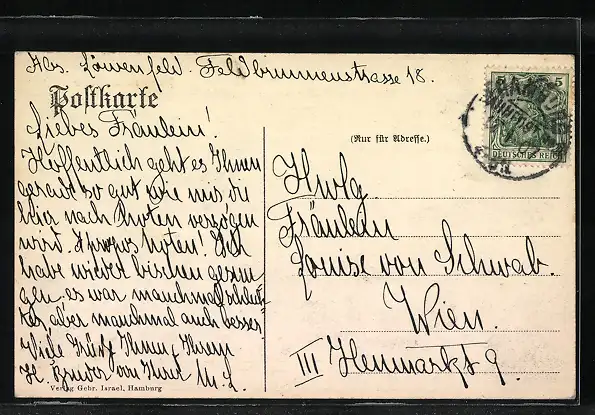 Abs. Löwenfeld. Feldbrunnenstrasse 18.
Postkarte
Liebes Fräulein!
Hoffentlich geht es Ihnen
gerade so gut wie mir, die
hier nach Noten verzogen
wird. Apropos Noten! Ich
habe wieder bischen gesun-
gen. es war manchmal schlech-
tes, aber manchmal auch besser.
Viele Grüße Ihnen, Ihrem
H. Bruder von Ihrer M. L.
Verlag Gebr. Israel, Hamburg
(Nur für Adresse.)
Hwlg.
Fräulein
Louise von Schwab.
Wien.
III Heumarkt 9.
5
DEUTSCHES REICH